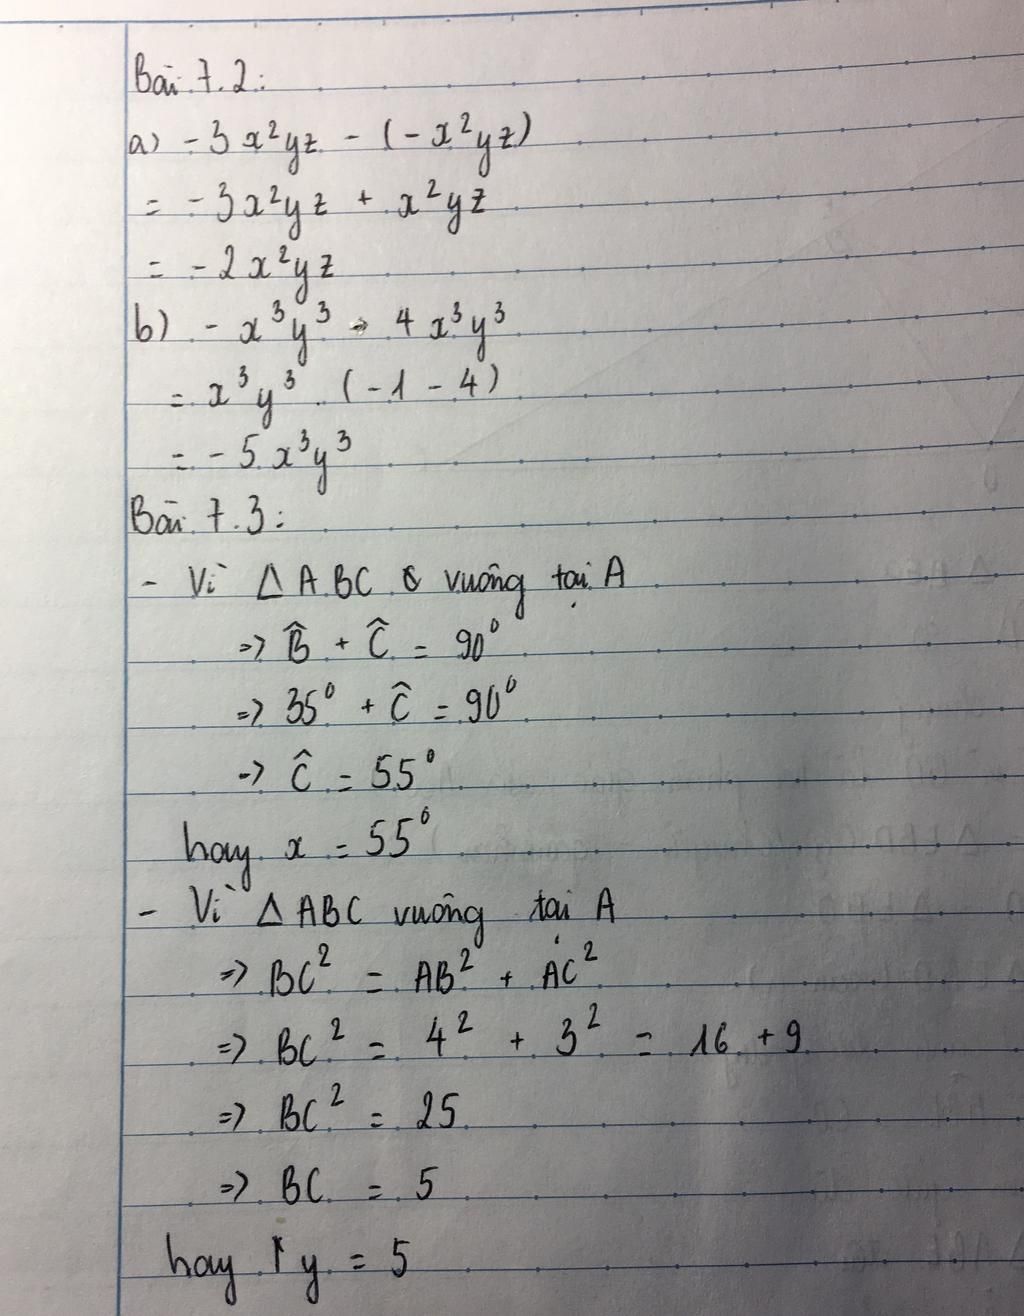 Bài 7.2:
a) -3x²yz - (-x²yz)
= -3x²yz + x²yz
= -2x²yz
b) - x³y³ - 4x³y³
= x³y³ . (-1 - 4)
= -5x³y³
Bài 7.3:
- Vì ΔABC vuông tại A
=> B̂ + Ĉ = 90°
=> 35° + Ĉ = 90°
=> Ĉ = 55°
hay x = 55°
- Vì ΔABC vuông tại A
=> BC² = AB² + AC²
=> BC² = 4² + 3² = 16 + 9
=> BC² = 25
=> BC = 5
hay y = 5